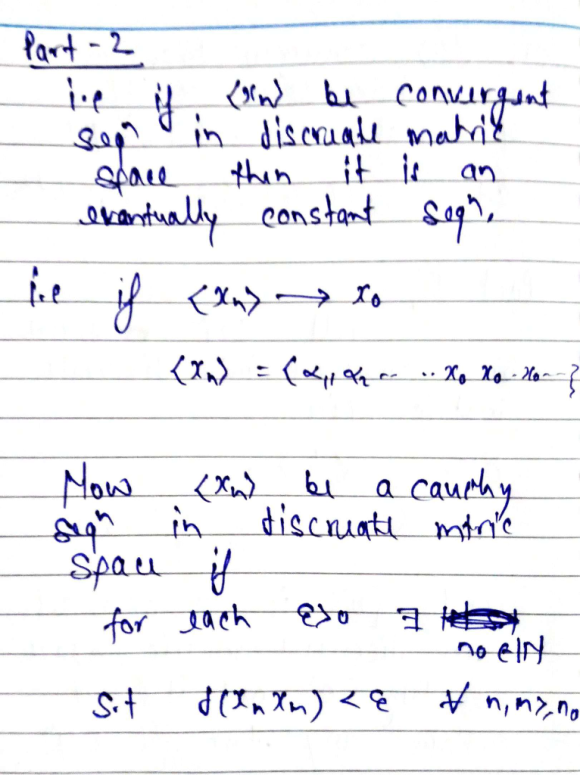 Part - 2
i.e if <xn> be convergent
seqn in discruate matric
space then it is an
evantually constant seqn.
i.e if <xn> → x0
<xn> = {α1, α2 -- .. x0 x0 - x0 --}
Now <xn> be a cauchy
seqn in discruate mtric
space if
for each ε>0 ∃
n0 ∈ IN
S.t d(xn xm) < ε ∀ n, m ≥, n0